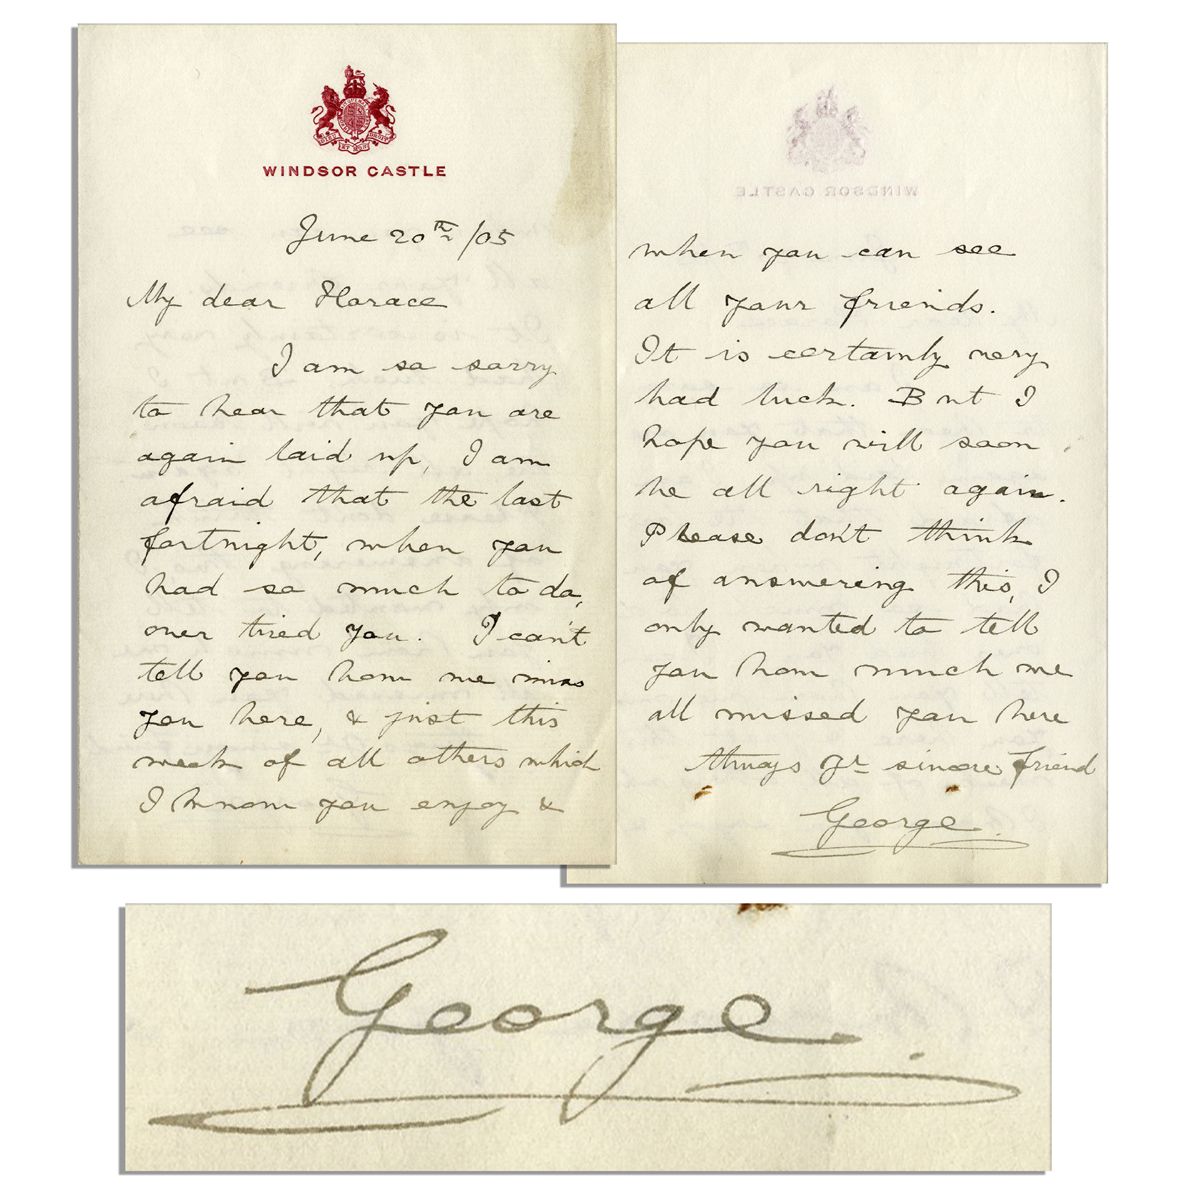 WINDSOR CASTLE
June 20th /05
My dear Horace
I am so sorry
to hear that you are
again laid up, I am
afraid that the last
fortnight, when you
had so much to do,
over tired you. I can't
tell you how we miss
you here, & just this
week of all others which
I know you enjoy &
WINDSOR CASTLE
when you can see
all your friends.
It is certainly very
bad luck. But I
hope you will soon
be all right again.
Please don't think
of answering this, I
only wanted to tell
you how much we
all missed you here
Always yr sincere friend
George.
George.